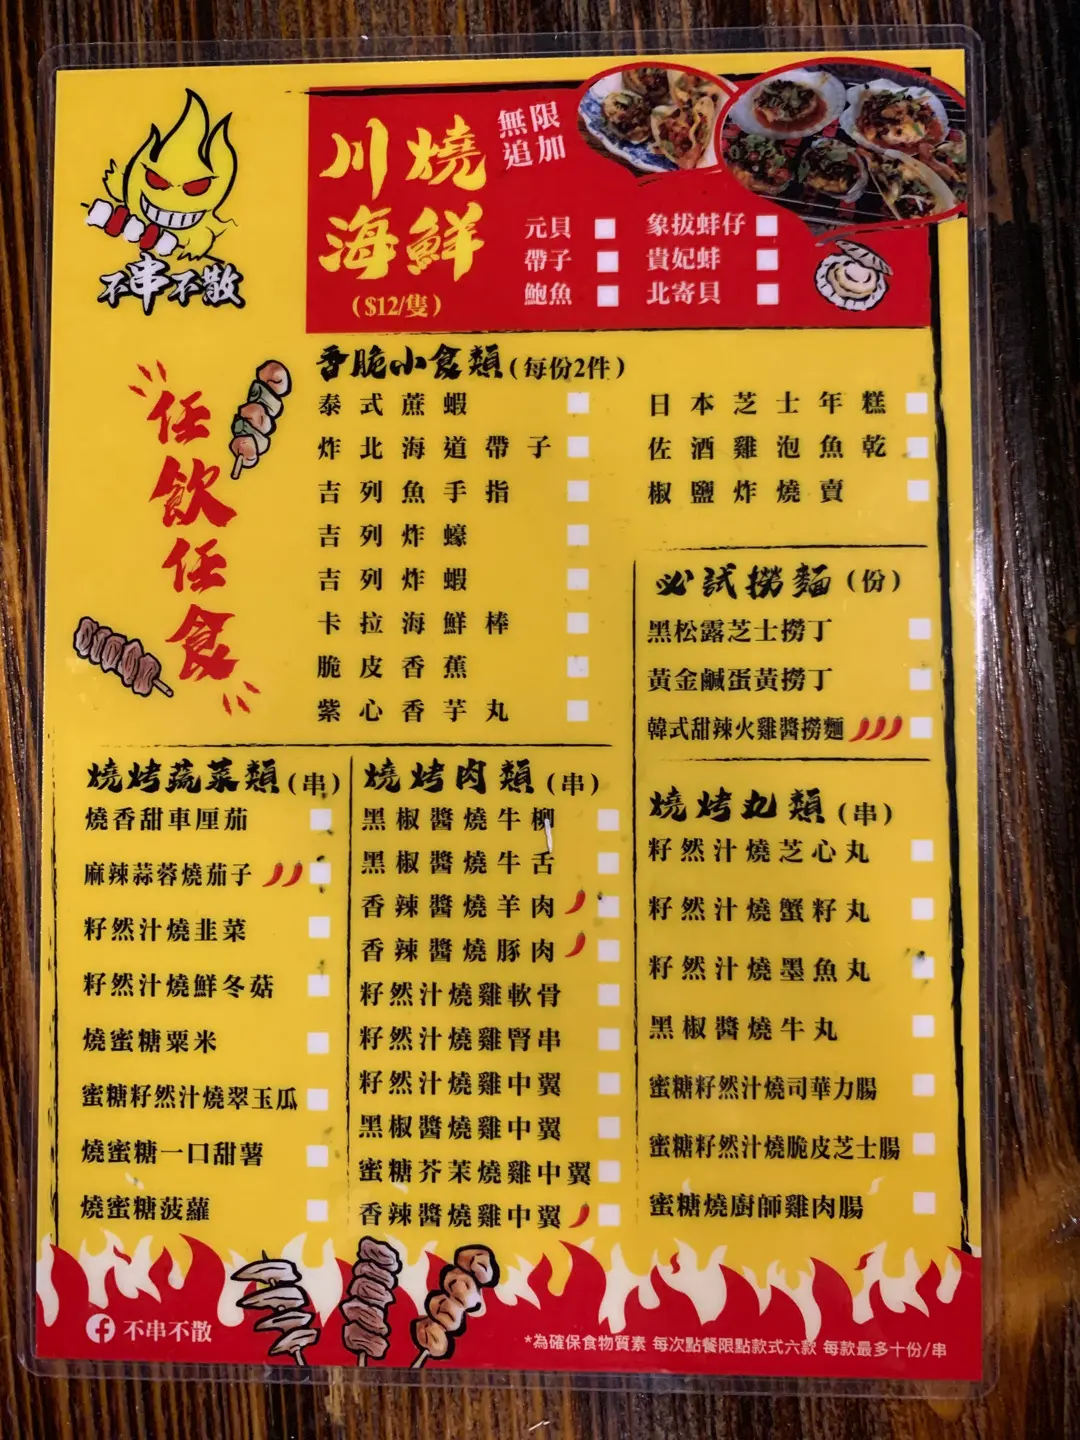 不串不散
川燒
海鮮
無限
追加
($12/隻)
元貝
象拔蚌仔
帶子
貴妃蚌
鮑魚
北寄貝
任飲任食
香脆小食類(每份2件)
泰式蔗蝦
炸北海道帶子
吉列魚手指
吉列炸蠔
吉列炸蝦
卡拉海鮮棒
脆皮香蕉
紫心香芋丸
日本芝士年糕
佐酒雞泡魚乾
椒鹽炸燒賣
必試撈麵(份)
黑松露芝士撈丁
黃金鹹蛋黃撈丁
韓式甜辣火雞醬撈麵
燒烤蔬菜類(串)
燒香甜車厘茄
麻辣蒜蓉燒茄子
籽然汁燒韭菜
籽然汁燒鮮冬菇
燒蜜糖粟米
蜜糖籽然汁燒翠玉瓜
燒蜜糖一口甜薯
燒蜜糖菠蘿
燒烤肉類(串)
黑椒醬燒牛柳
黑椒醬燒牛舌
香辣醬燒羊肉
香辣醬燒豚肉
籽然汁燒雞軟骨
籽然汁燒雞腎串
籽然汁燒雞中翼
黑椒醬燒雞中翼
蜜糖芥茉燒雞中翼
香辣醬燒雞中翼
燒烤丸類(串)
籽然汁燒芝心丸
籽然汁燒蟹籽丸
籽然汁燒墨魚丸
黑椒醬燒牛丸
蜜糖籽然汁燒司華力腸
蜜糖籽然汁燒脆皮芝士腸
蜜糖燒廚師雞肉腸
不串不散
*為確保食物質素 每次點餐限點款式六款 每款最多十份/串